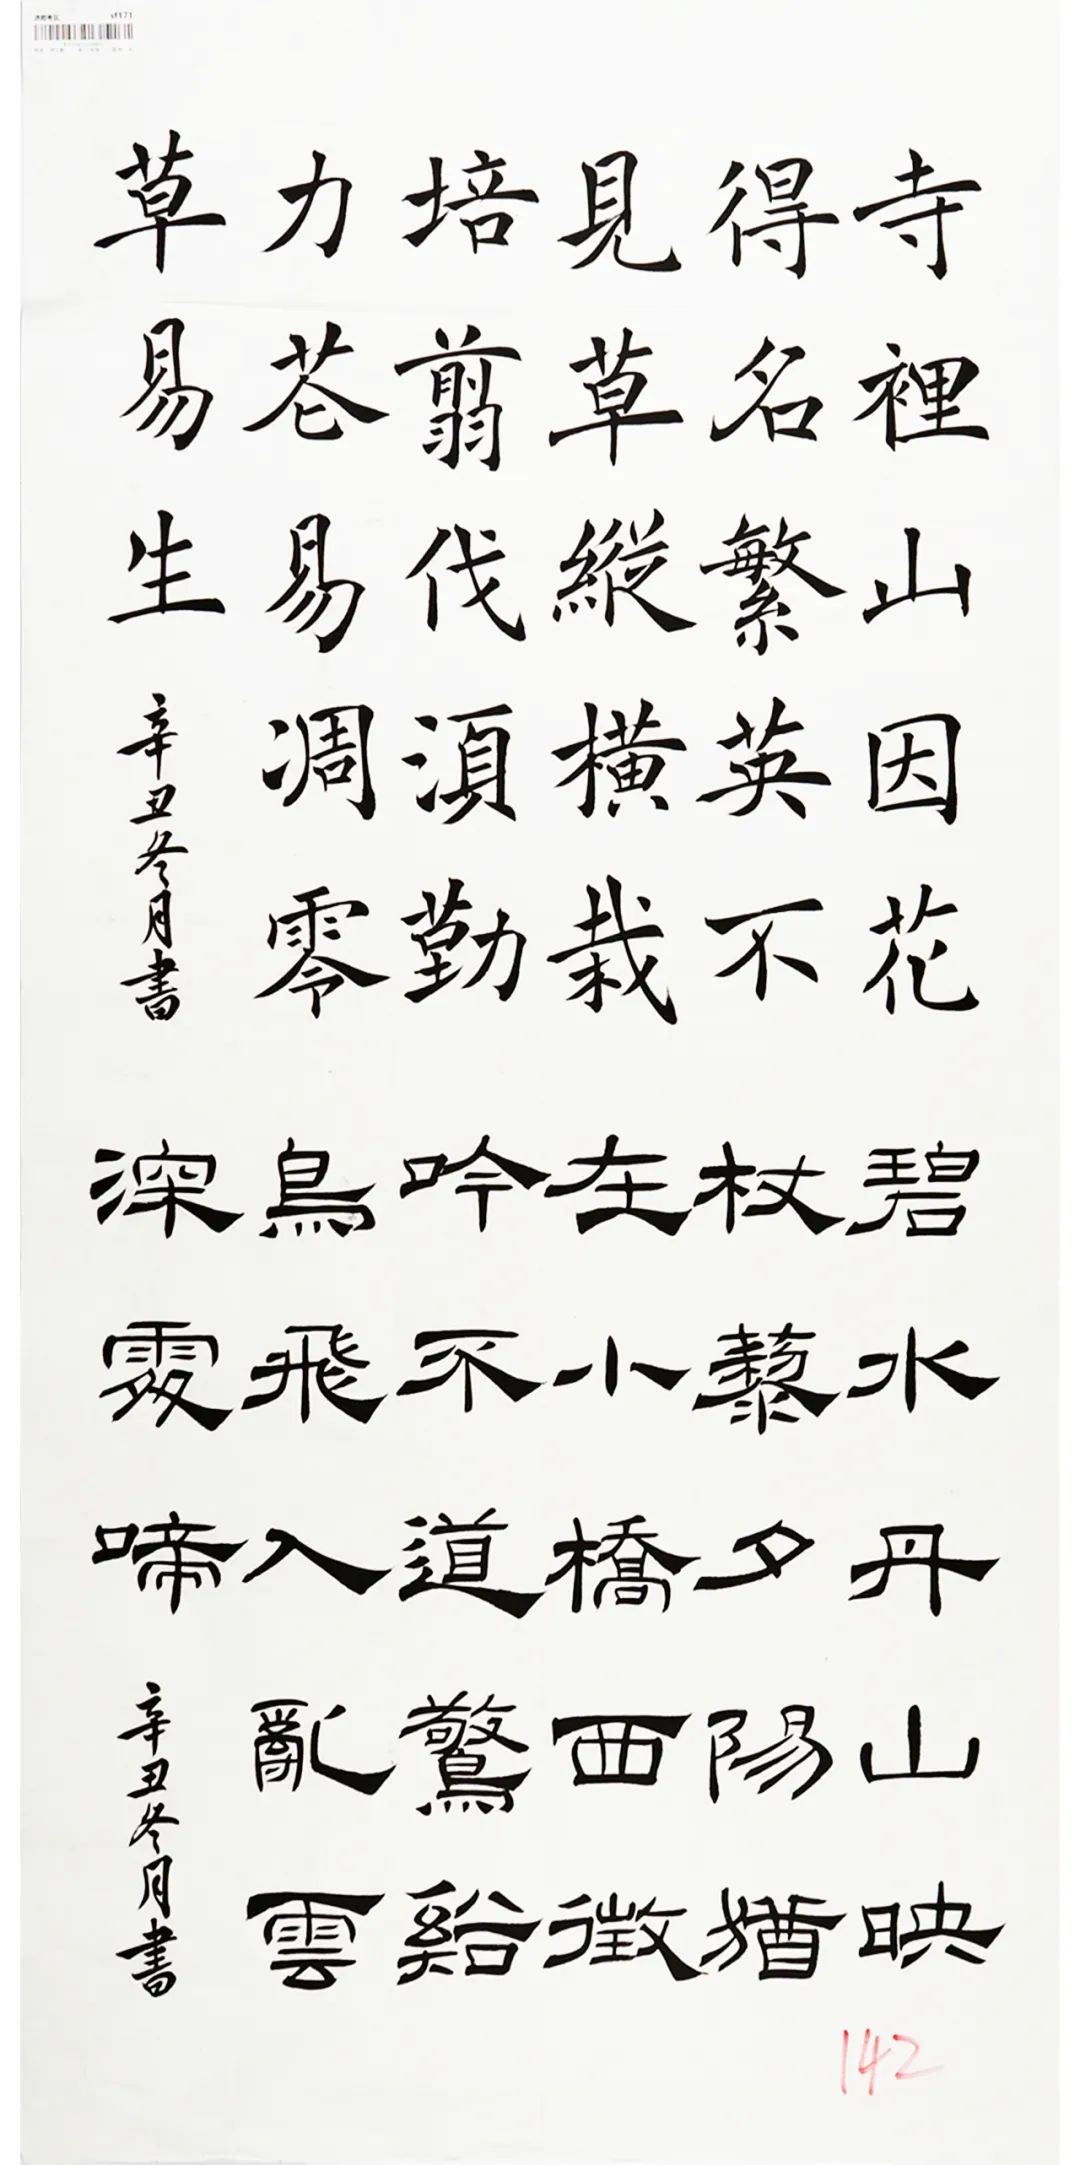 sf171
寺裡山因花
得名繁英不
見草縱橫栽
培翦伐湏勤
力芲易凋零
草易生
辛丑冬月書
碧水丹山映
杖藜夕陽猶
在小橋西微
吟不道驚谿
鳥飛入亂雲
深處啼
辛丑冬月書
142